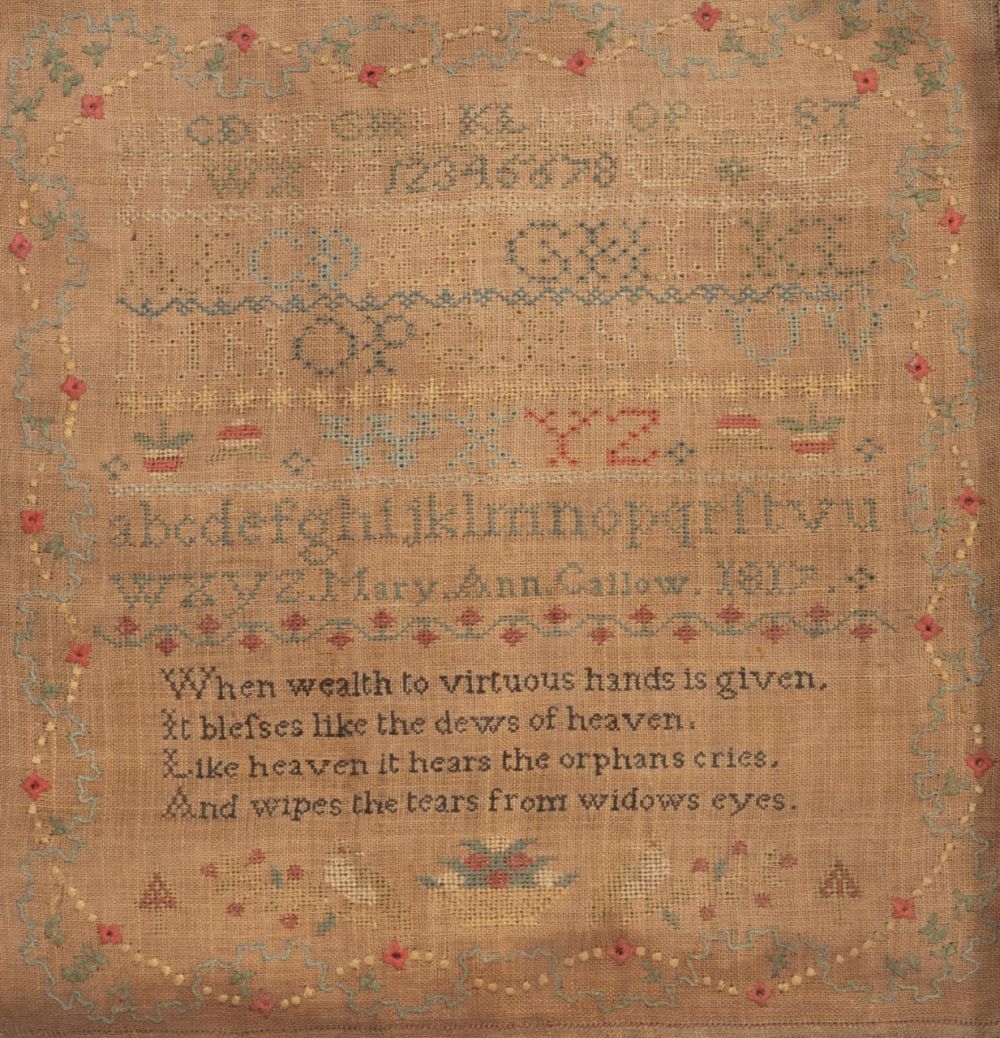 ABCDEFGHIJKLMNOP ST
VUWXYZ12345678
ABCD GHIJKL
MNOPQRSTUV
WXYZ
abcdefghijklmnopqrſtvu
wxyz.Mary.Ann.Callow.1817.
When wealth to virtuous hands is given,
It bleſses like the dews of heaven:
Like heaven it hears the orphans cries,
And wipes the tears from widows eyes.